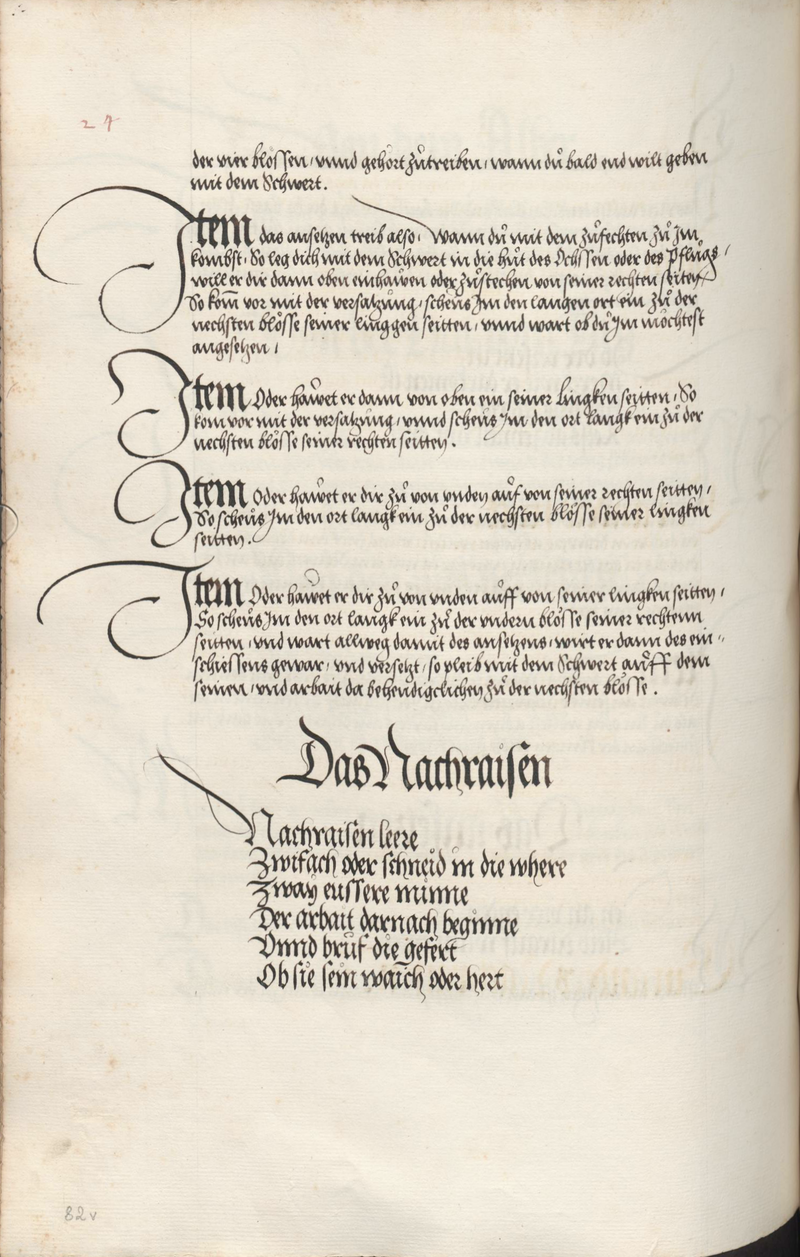 27
der vier blossen, vnnd gehört zůtreiben, wann dů bald end wilt geben
mit dem Schwert.
Item das ansetzen treib also, Wann dů mit dem zůfechten zů Jm
kombst, So leg dich mit dem Schwert in die hůt des Ochssen oder des Pflůgs,
will er dir dann oben einhawen oder zůstechen von seiner rechten seitten
So kom̄ vor mit der versatzůng, scheůs Jm den langen ort ein zů der
nechsten blösse seiner linggen seitten, vnnd wart ob dů Jm möchtest
angesetzen,
Item Oder haẘet er dann von oben ein seiner Lingken seitten, So
kom vor mit der versatzůng, vnnd scheůs Jm den ort langk ein zů der
nechsten blösse seiner rechten seitten.
Item Oder haẘet er dir zů von vnden aůf von seiner rechten seitten,
So scheůs Jm den ort langk ein zů der nechsten blösse seiner lingken
seitten.
Item Oder haẘet er dir zů von vnden aůff von seiner lingken seitten,
So scheůs Jm den ort langk ein zů der vndern blösse seiner rechtenn
seitten, vnd wart allweg damit des ansetzens, wirt er dann des ein,,
schiessens gewar, vnd versetzt, so pleib mit dem Schwert aůff dem
seinen, vnd arbait da behendigclichen zů der nechsten blösse.
Das Nachraisen
Nachraisen leere
Zwifach oder schneid in die where
Zway eussere minne
Der arbait darnach beginne
Vnnd brůf die gefert
Ob sie sein waich oder hert
82v